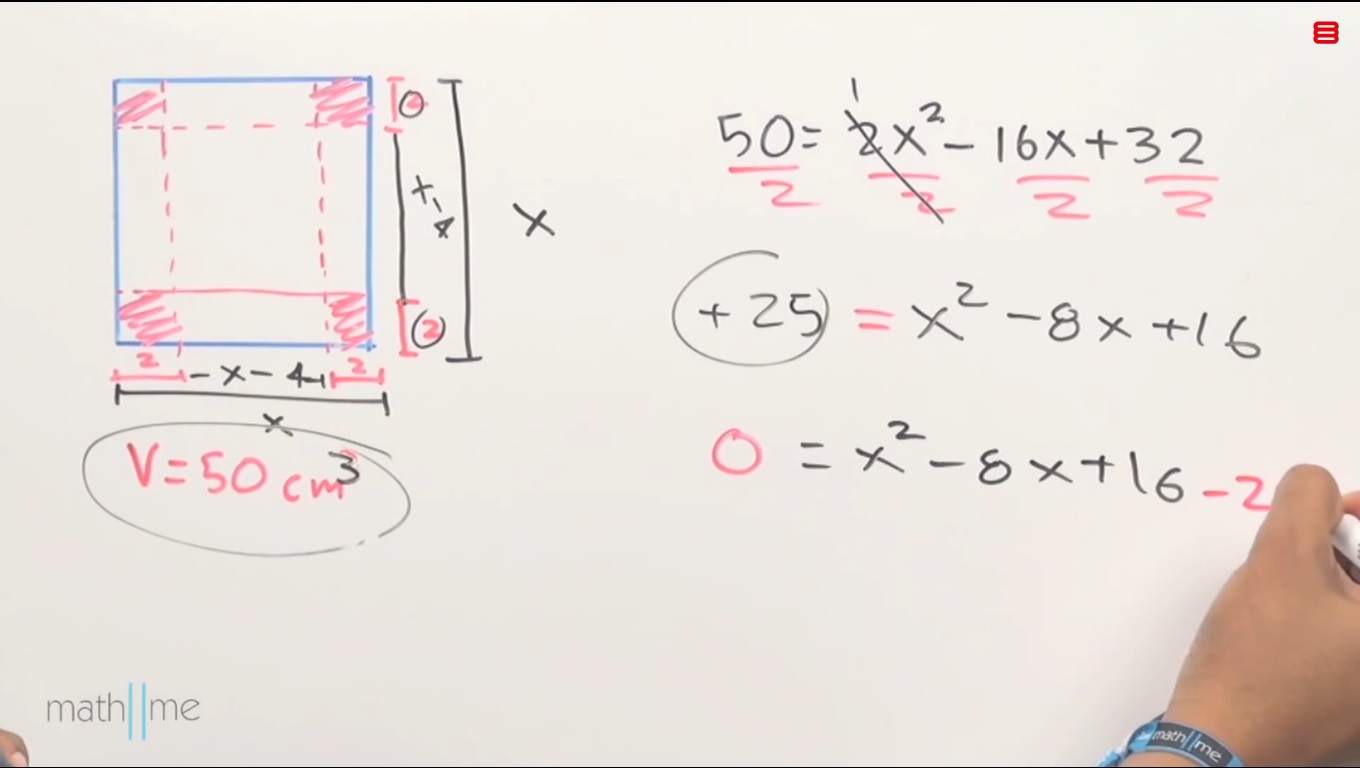 2
x-4
x
2
2
-x-4
2
x
V=50 cm³
1
50 = 2x² - 16x + 32
2 2 2 2
+25 = x² - 8x + 16
0 = x² - 8x + 16 - 2
math||me
math||me